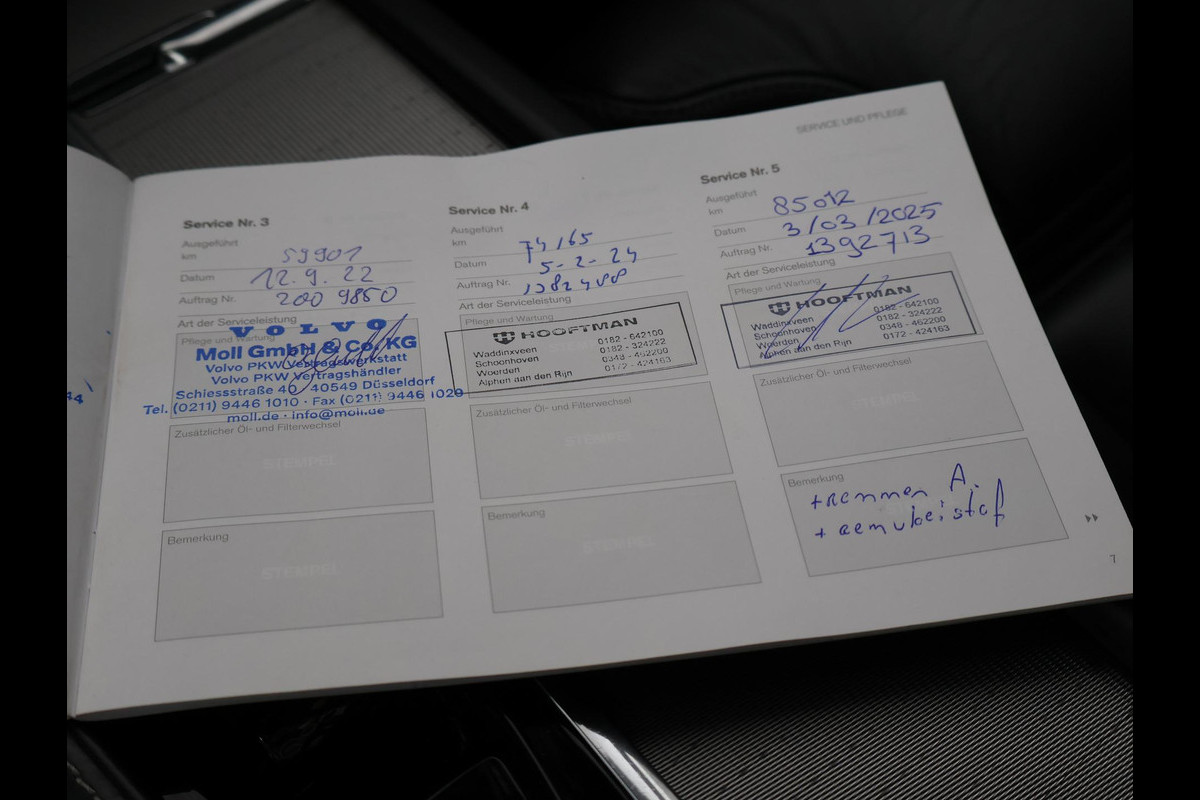 SERVICE UND PFLEGE
Service Nr. 3
Ausgeführt
km 59901
Datum 12.9.22
Auftrag Nr. 200 9850
Art der Serviceleistung
Pflege und Wartung
VOLVO
Moll GmbH & Co. KG
Volvo PKW Vertragswerkstatt
Volvo PKW Vertragshändler
Schiessstraße 40 · 40549 Düsseldorf
Tel. (0211) 9446 1010 · Fax (0211) 9446 1020
moll.de · info@moll.de
Zusätzlicher Öl- und Filterwechsel
STEMPEL
Bemerkung
STEMPEL
Service Nr. 4
Ausgeführt
km 74165
Datum 5-2-24
Auftrag Nr. 1382488
Art der Serviceleistung
Pflege und Wartung
HOOFTMAN
Waddinxveen 0182 - 642100
Schoonhoven 0182 - 324222
Woerden 0348 - 462200
Alphen aan den Rijn 0172 - 424163
Zusätzlicher Öl- und Filterwechsel
STEMPEL
Bemerkung
STEMPEL
Service Nr. 5
Ausgeführt
km 85012
Datum 3/03/2025
Auftrag Nr. 1392713
Art der Serviceleistung
Pflege und Wartung
HOOFTMAN
Waddinxveen 0182 - 642100
Schoonhoven 0182 - 324222
Woerden 0348 - 462200
Alphen aan den Rijn 0172 - 424163
Zusätzlicher Öl- und Filterwechsel
STEMPEL
Bemerkung
+ remmen A.
+ remvloeistof
7